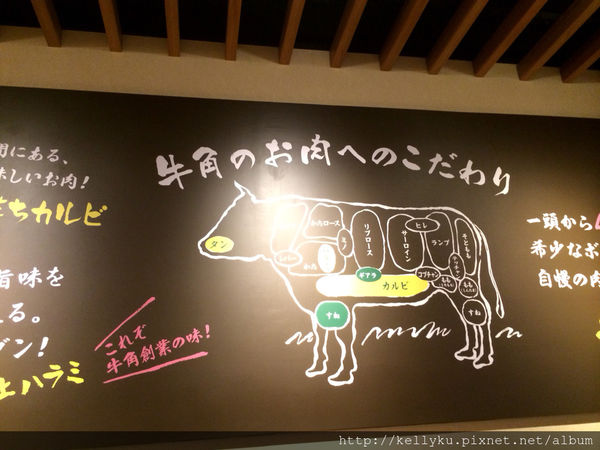 牛角のお肉へのこだわり
間にある、
味しいお肉!
ちカルビ
旨味を
る。
ン!
上ハラミ
これぞ
牛角創業の味!
一頭から
希少なボ
自慢の肉
タン
かたロース
リブロース
サーロイン
ヒレ
ランプ
そともも
ギアラ
コプチャン
カルビ
もも
もも
すね
すね
http://kellyku.pixnet.net/album